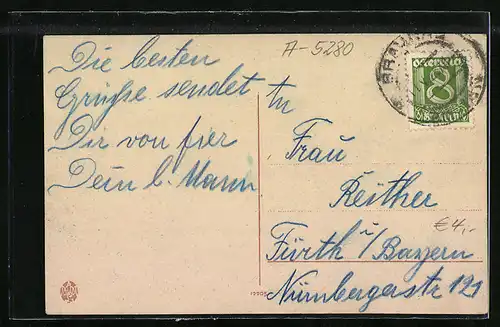 A-5280
BRAUNAU
Österreich
8
Die besten
Grüße sendet
Dir von hier
Dein l. Mann
An
Frau
Reither
€4,-
Fürth i/Bayern
Nürnbergerstr 121